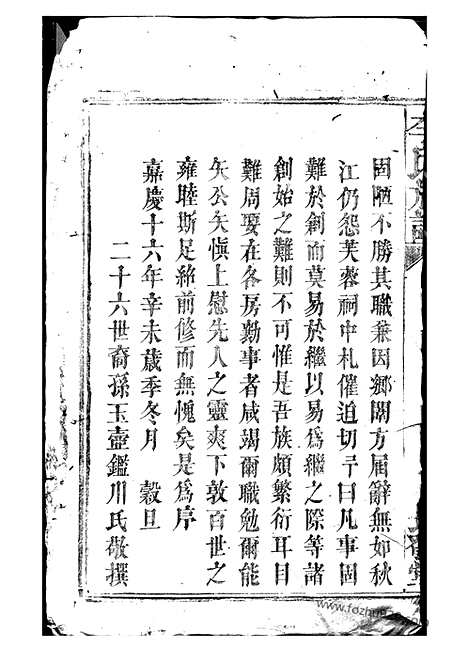 固陋不勝其職兼因鄉闈方届辭無如秋
江仍怨芙蓉祠中札催迫切予曰凡事固
難於創而莫易於繼以易為繼之際等諸
創始之難則不可惟是吾族頗繁衍耳目
難周要在各房勤事者咸竭爾職勉爾能
矢公矢慎上慰先人之靈爽下敦百世之
雍睦斯足紹前修而無愧矣是為序
嘉慶十六年辛未歲季冬月　穀旦
二十六世裔孫玉壺鑑川氏敬撰